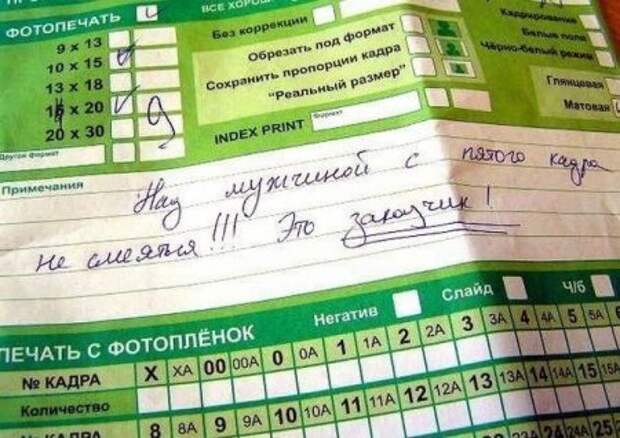 ФОТОПЕЧАТЬ
ВСЕ ХОРОШ
9 x 13
10 x 15
13 x 18
15 x 20
9
20 x 30
Другой формат
Без коррекции
Обрезать под формат
Сохранить пропорции кадра
"Реальный размер"
INDEX PRINT
Формат
Кадрирование
Белые поля
Чёрно-белый режим
Глянцевая
Матовая
Примечания
Над мужчиной с пятого кадра
не смеяться!!! Это заказчик!
ПЕЧАТЬ С ФОТОПЛЁНОК
Негатив
Слайд
Ч/б
№ КАДРА X XA 00 00A 0 0A 1 1A 2 2A 3 3A 4 4A 5 5A 6
Количество
№ КАДРА 8 8A 9 9A 10 10A 11 11A 12 12A 13 13A 14 14A 15 15A
23A 24 24A 25